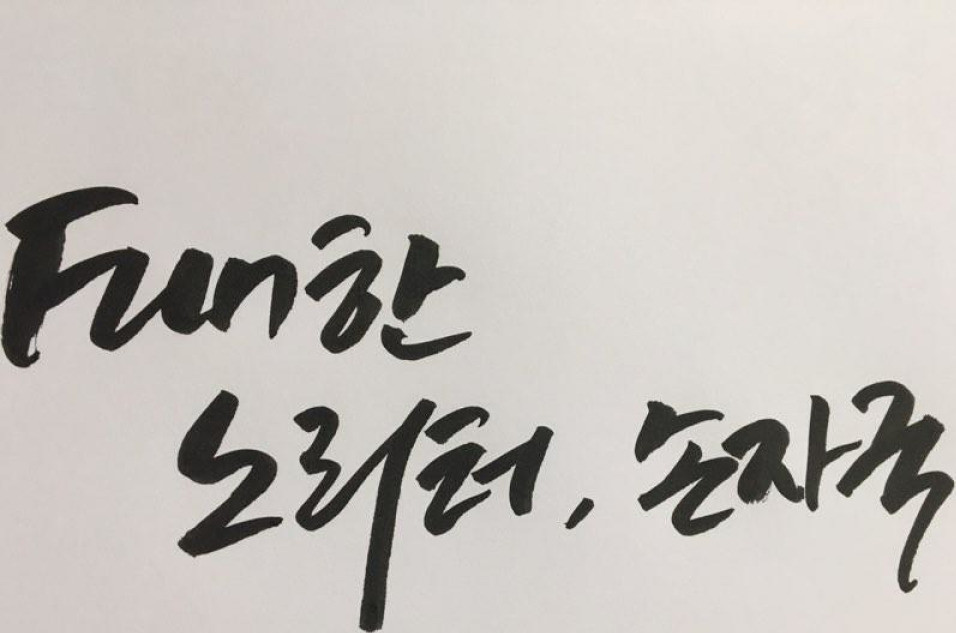 Fun한
노리터, 손자국